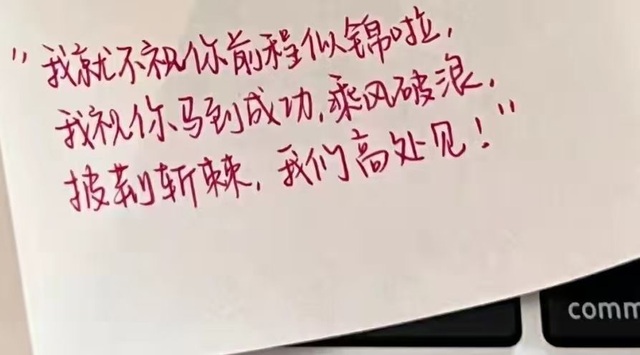 “我就不祝你前程似锦啦，
我祝你马到成功，乘风破浪，
披荆斩棘，我们高处见！”
comm